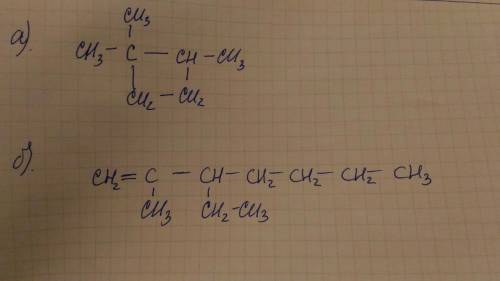 а).
CH₃
CH₃ – C – CH – CH₃
CH₂ – CH₂
б).
CH₂ = C – CH – CH₂ – CH₂ – CH₂ – CH₃
CH₃ CH₂–CH₃